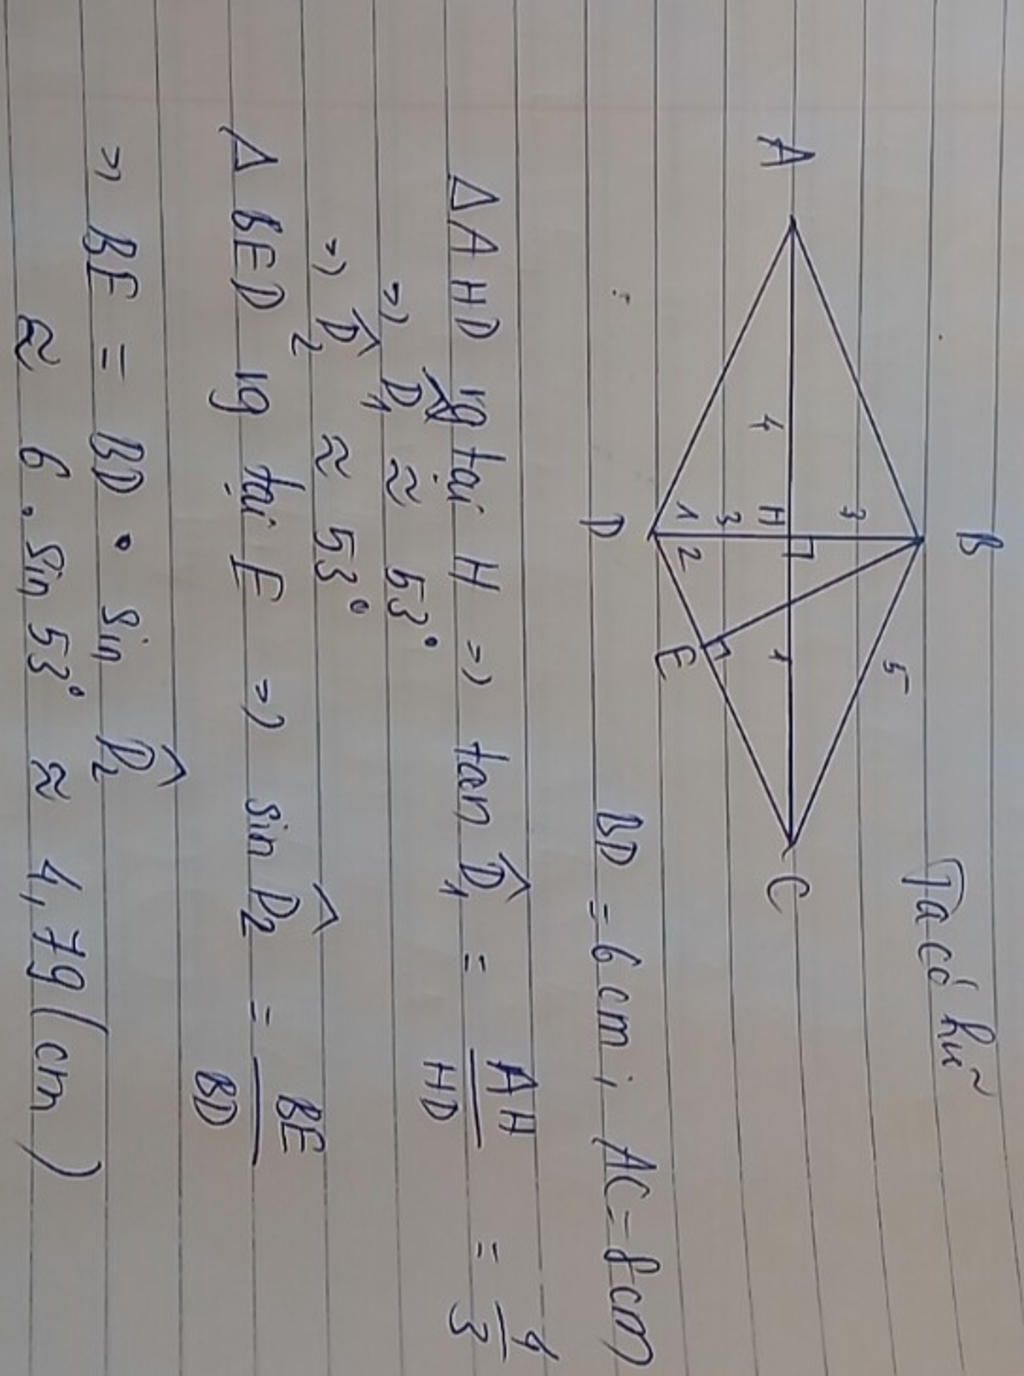 B
Ta có hvẽ
3
5
A
4
H
1
C
3
1
2
E
D
BD = 6cm; AC = 8cm
Δ AHD vg tại H => tan D̂₁ = AH/HD = 4/3
=> D̂₁ ≈ 53°
=> D̂₂ ≈ 53°
Δ BED vg tại E => sin D̂₂ = BE/BD
=> BE = BD . sin D̂₂
≈ 6 . sin 53° ≈ 4,79 (cm)